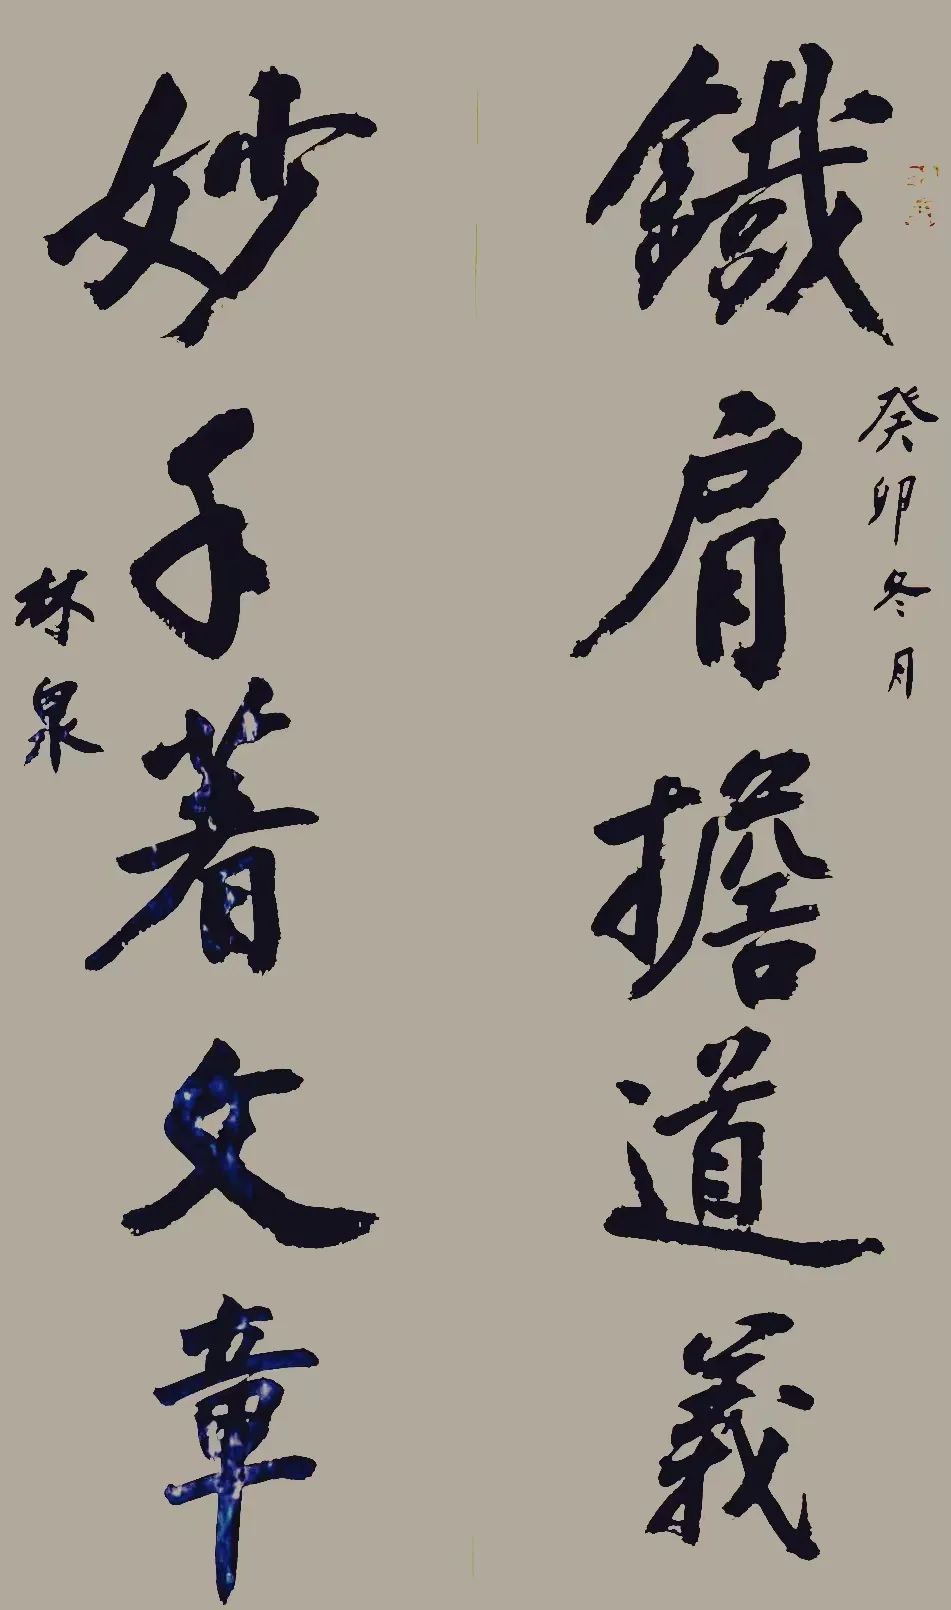 癸卯冬月
鐵肩擔道義
妙手著文章
林泉